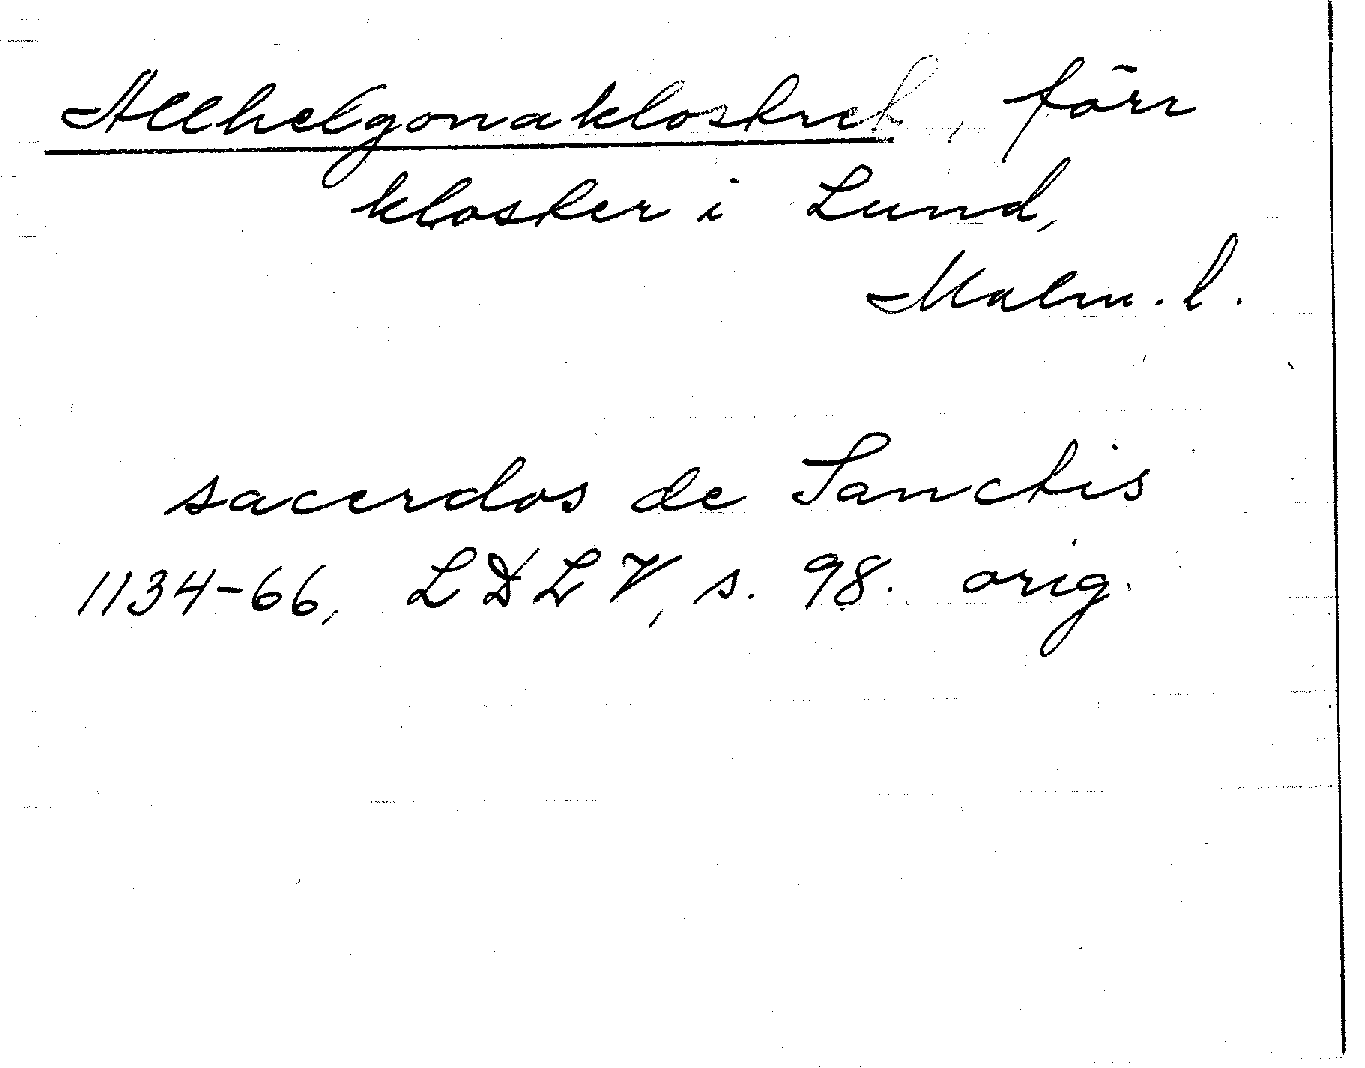 Allhelgonaklostret, förr
kloster i Lund,
Malm. l.
sacerdos de Sanctis
1134-66, LDLV, s. 98. orig.